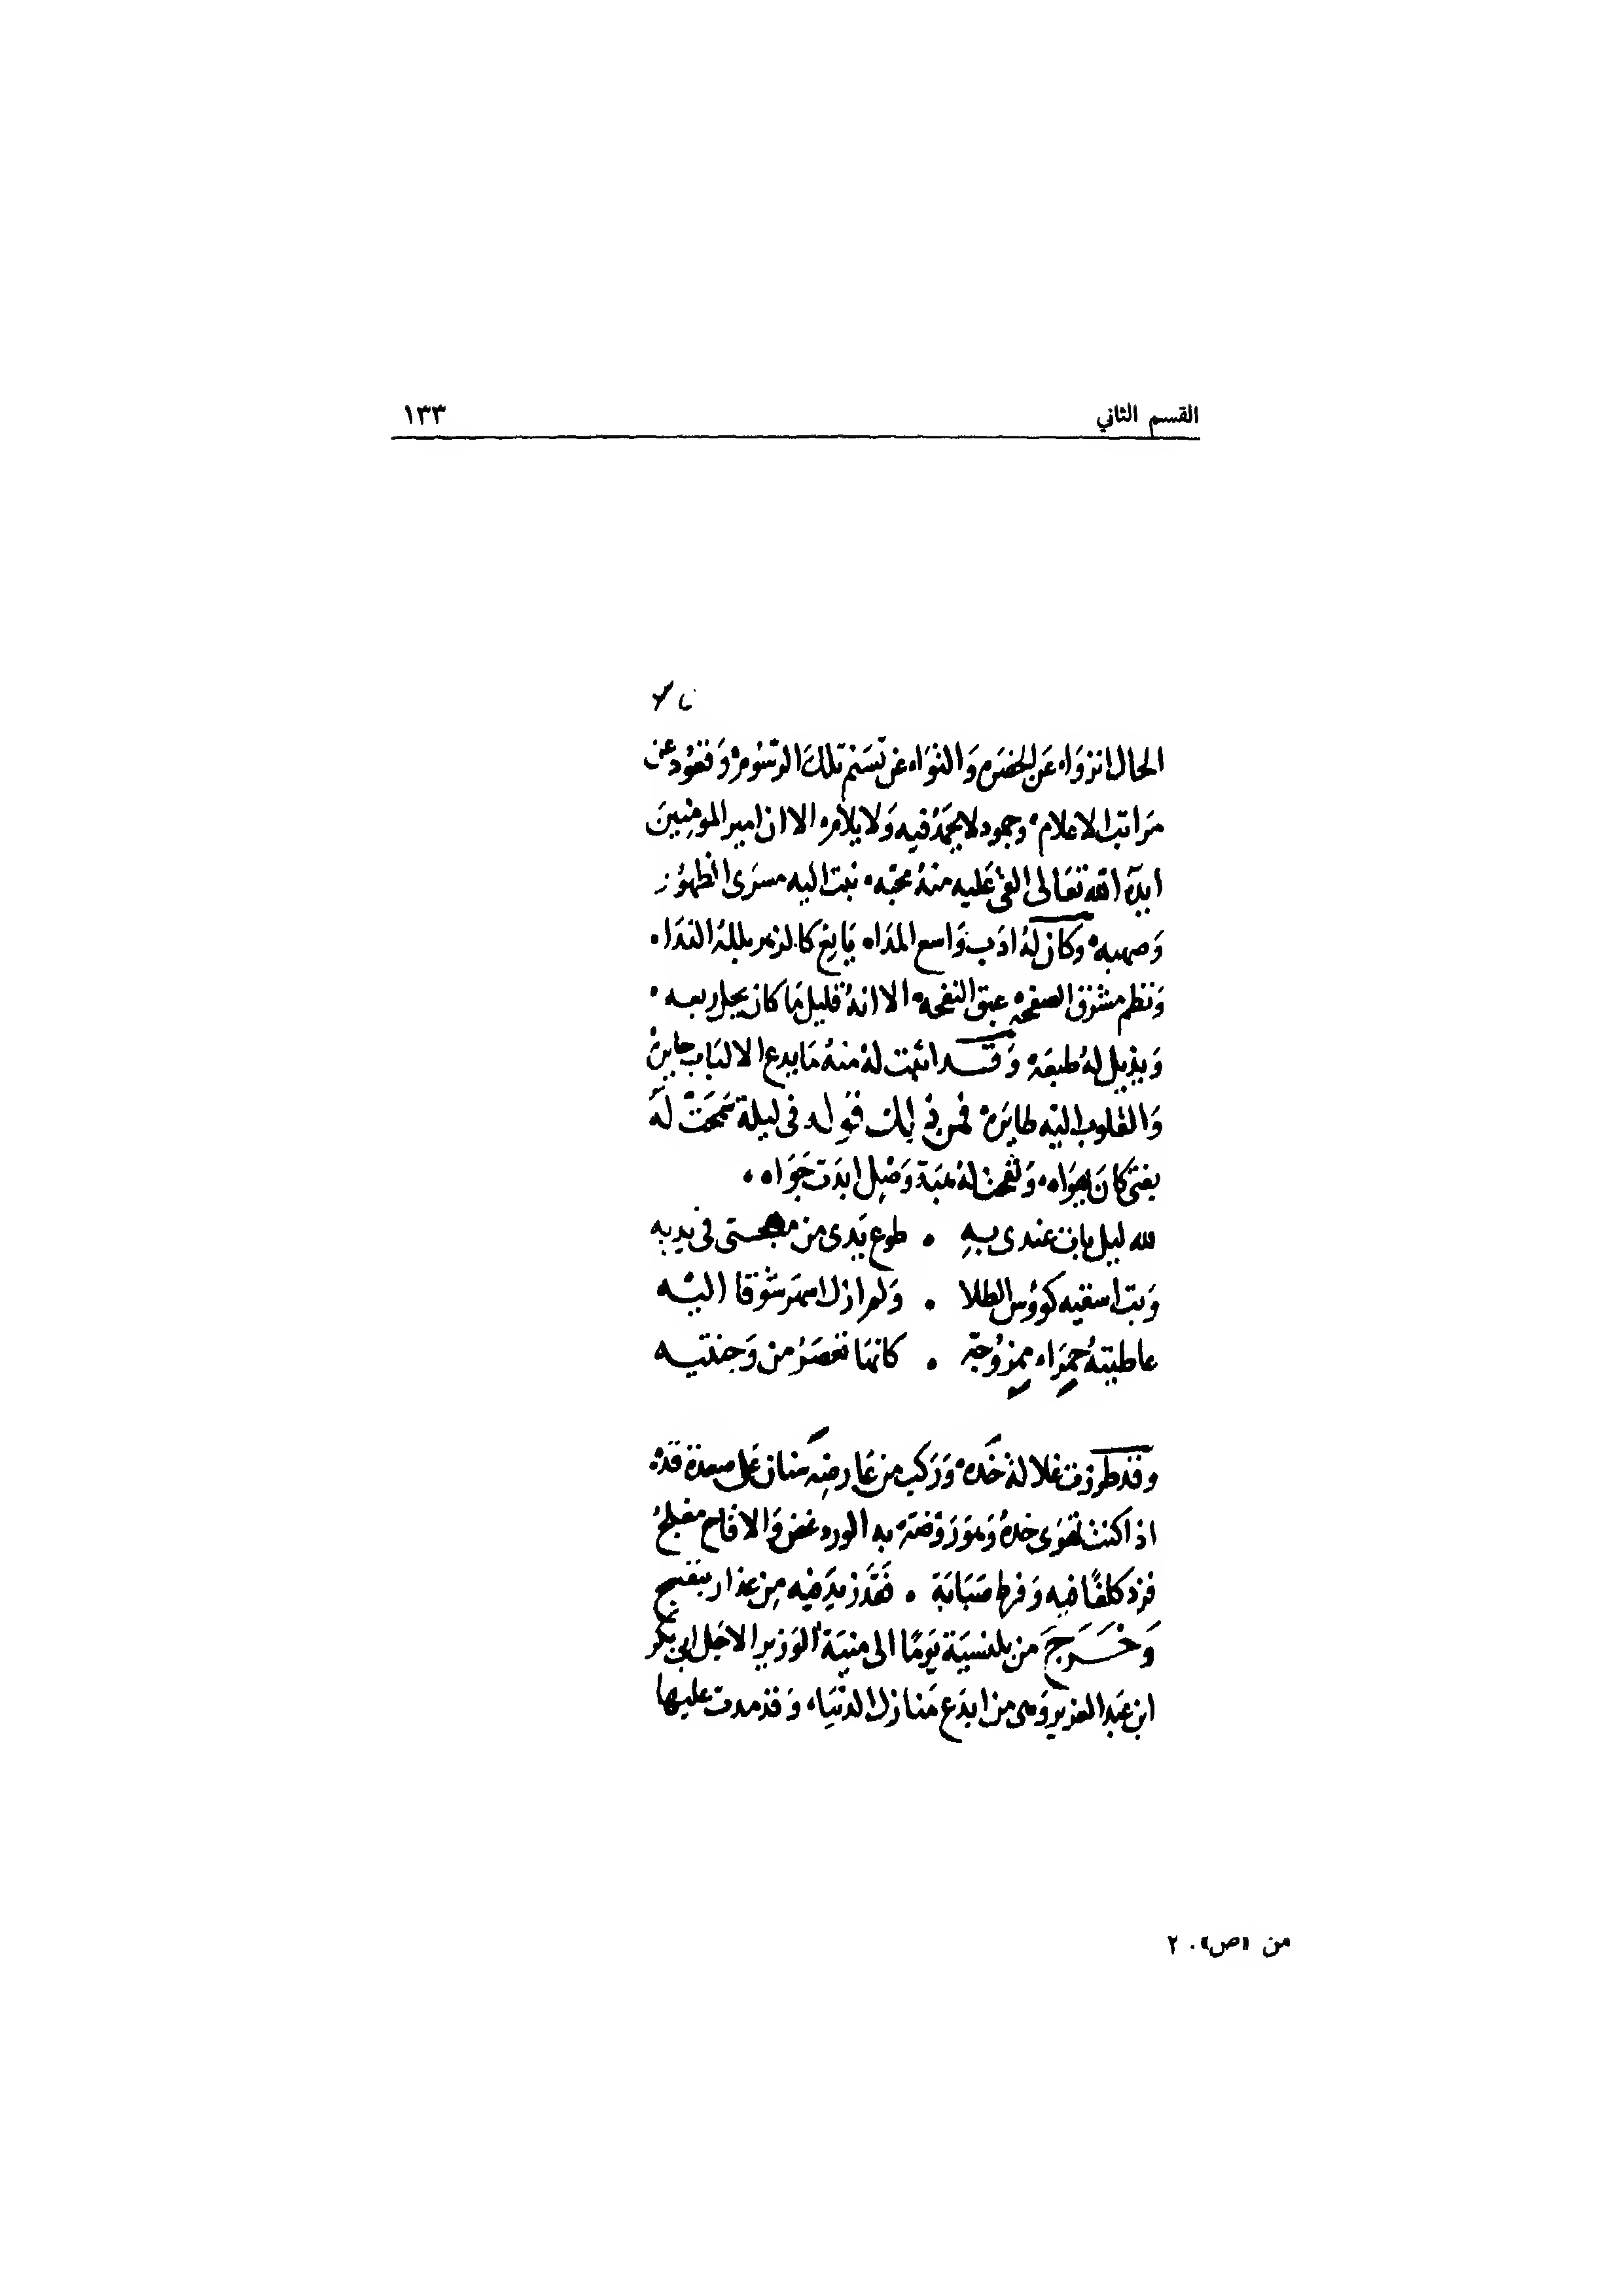 القسم الثاني ١٣٣
الحال انزواء عن الحضر والتواء عن تسنم تلك الرسوم وقعود عن
مراتب الاعلام وجمود لا يحمد فيه ولا يلام الا ان امير المومنين
ايده الله تعالى القى عليه منه محبه مسرى الظهور
وكان له ادب واسع المداه يانع كالزهر بلله الندا
ونظم مشرق الصفحه عبق النفحه الا انه قليل ما كان يحل ربعه
ويذيل له طبعه وقد اثبت له منه ما يدع الالباب حايره
والقلوب اليه طايره فمن ذلك قوله في ليلة سمحت له
بفتى كان يهواه ونفحت له هبة وصل ابدت جواه
لله ليل بات عندى به طوع يدى من مهجتى في يديه
وبت اسقيه كوؤس الطلا ولم ازل اسهر شوقا اليه
عاطيته حمراء ممزوجة كانها تعصر من وجنتيه
وقد طرزت غلالة خده وركب من عارضه سنان على صعدة قده
اذا كنت تهوى خده وهو روضة به الورد غض والاقاح مفلج
فزد كلفا فيه وفرط صبابة فقد زيد فيه من عذار بنفسج
وخرج من بلنسية يوما الى منية الوزير الاجل ابى بكر
ابن عبد العزيز وهى من ابدع منازل الدنيا وقد مدت عليها
من «ص» ٢٠